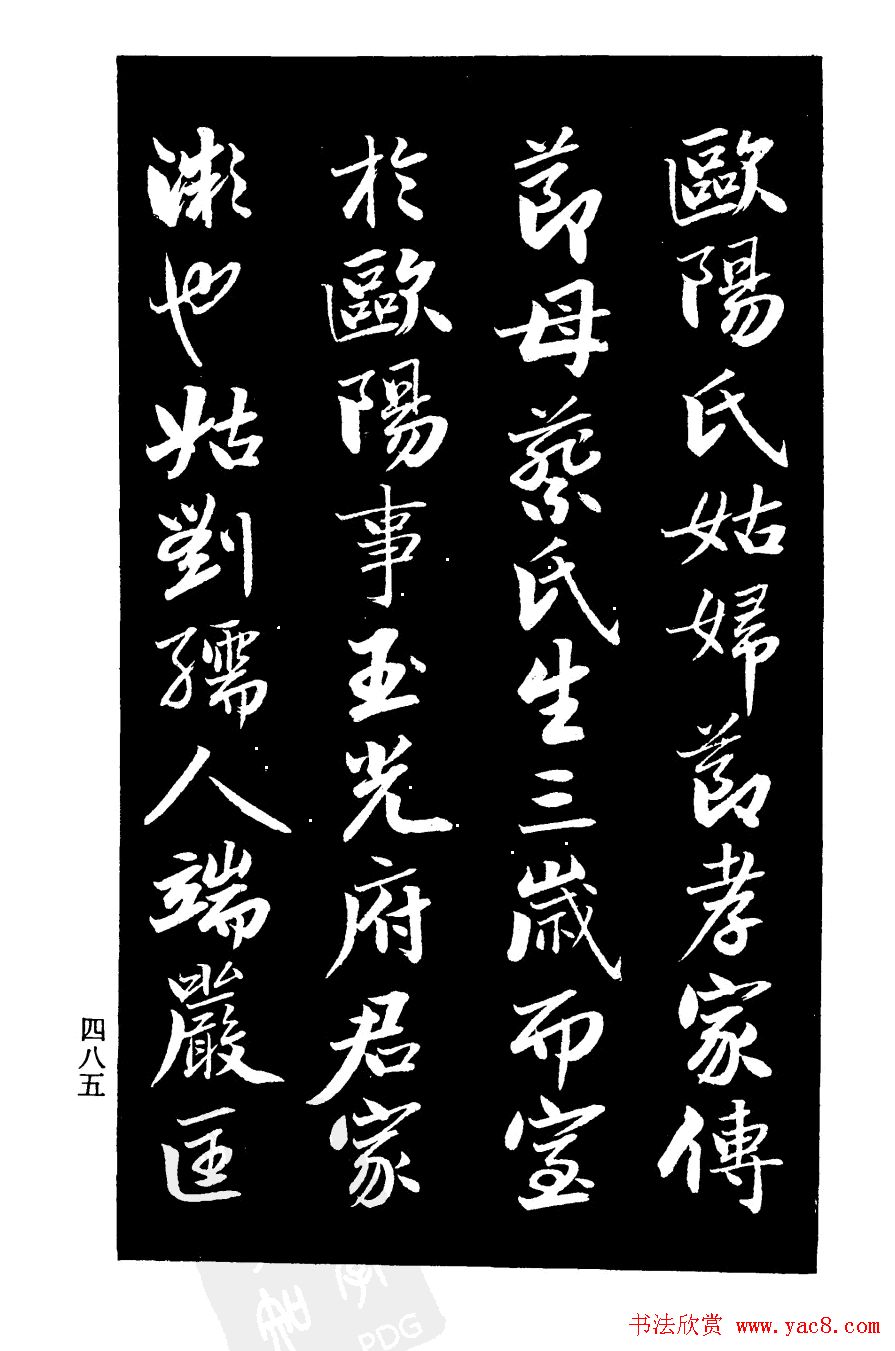 歐陽氏姑婦節孝家傳
節母蔡氏生三歲而室
於歐陽事玉光府君家
漸也姑劉孺人端嚴匡
四八五
PDG
书法欣赏 www.yac8.com